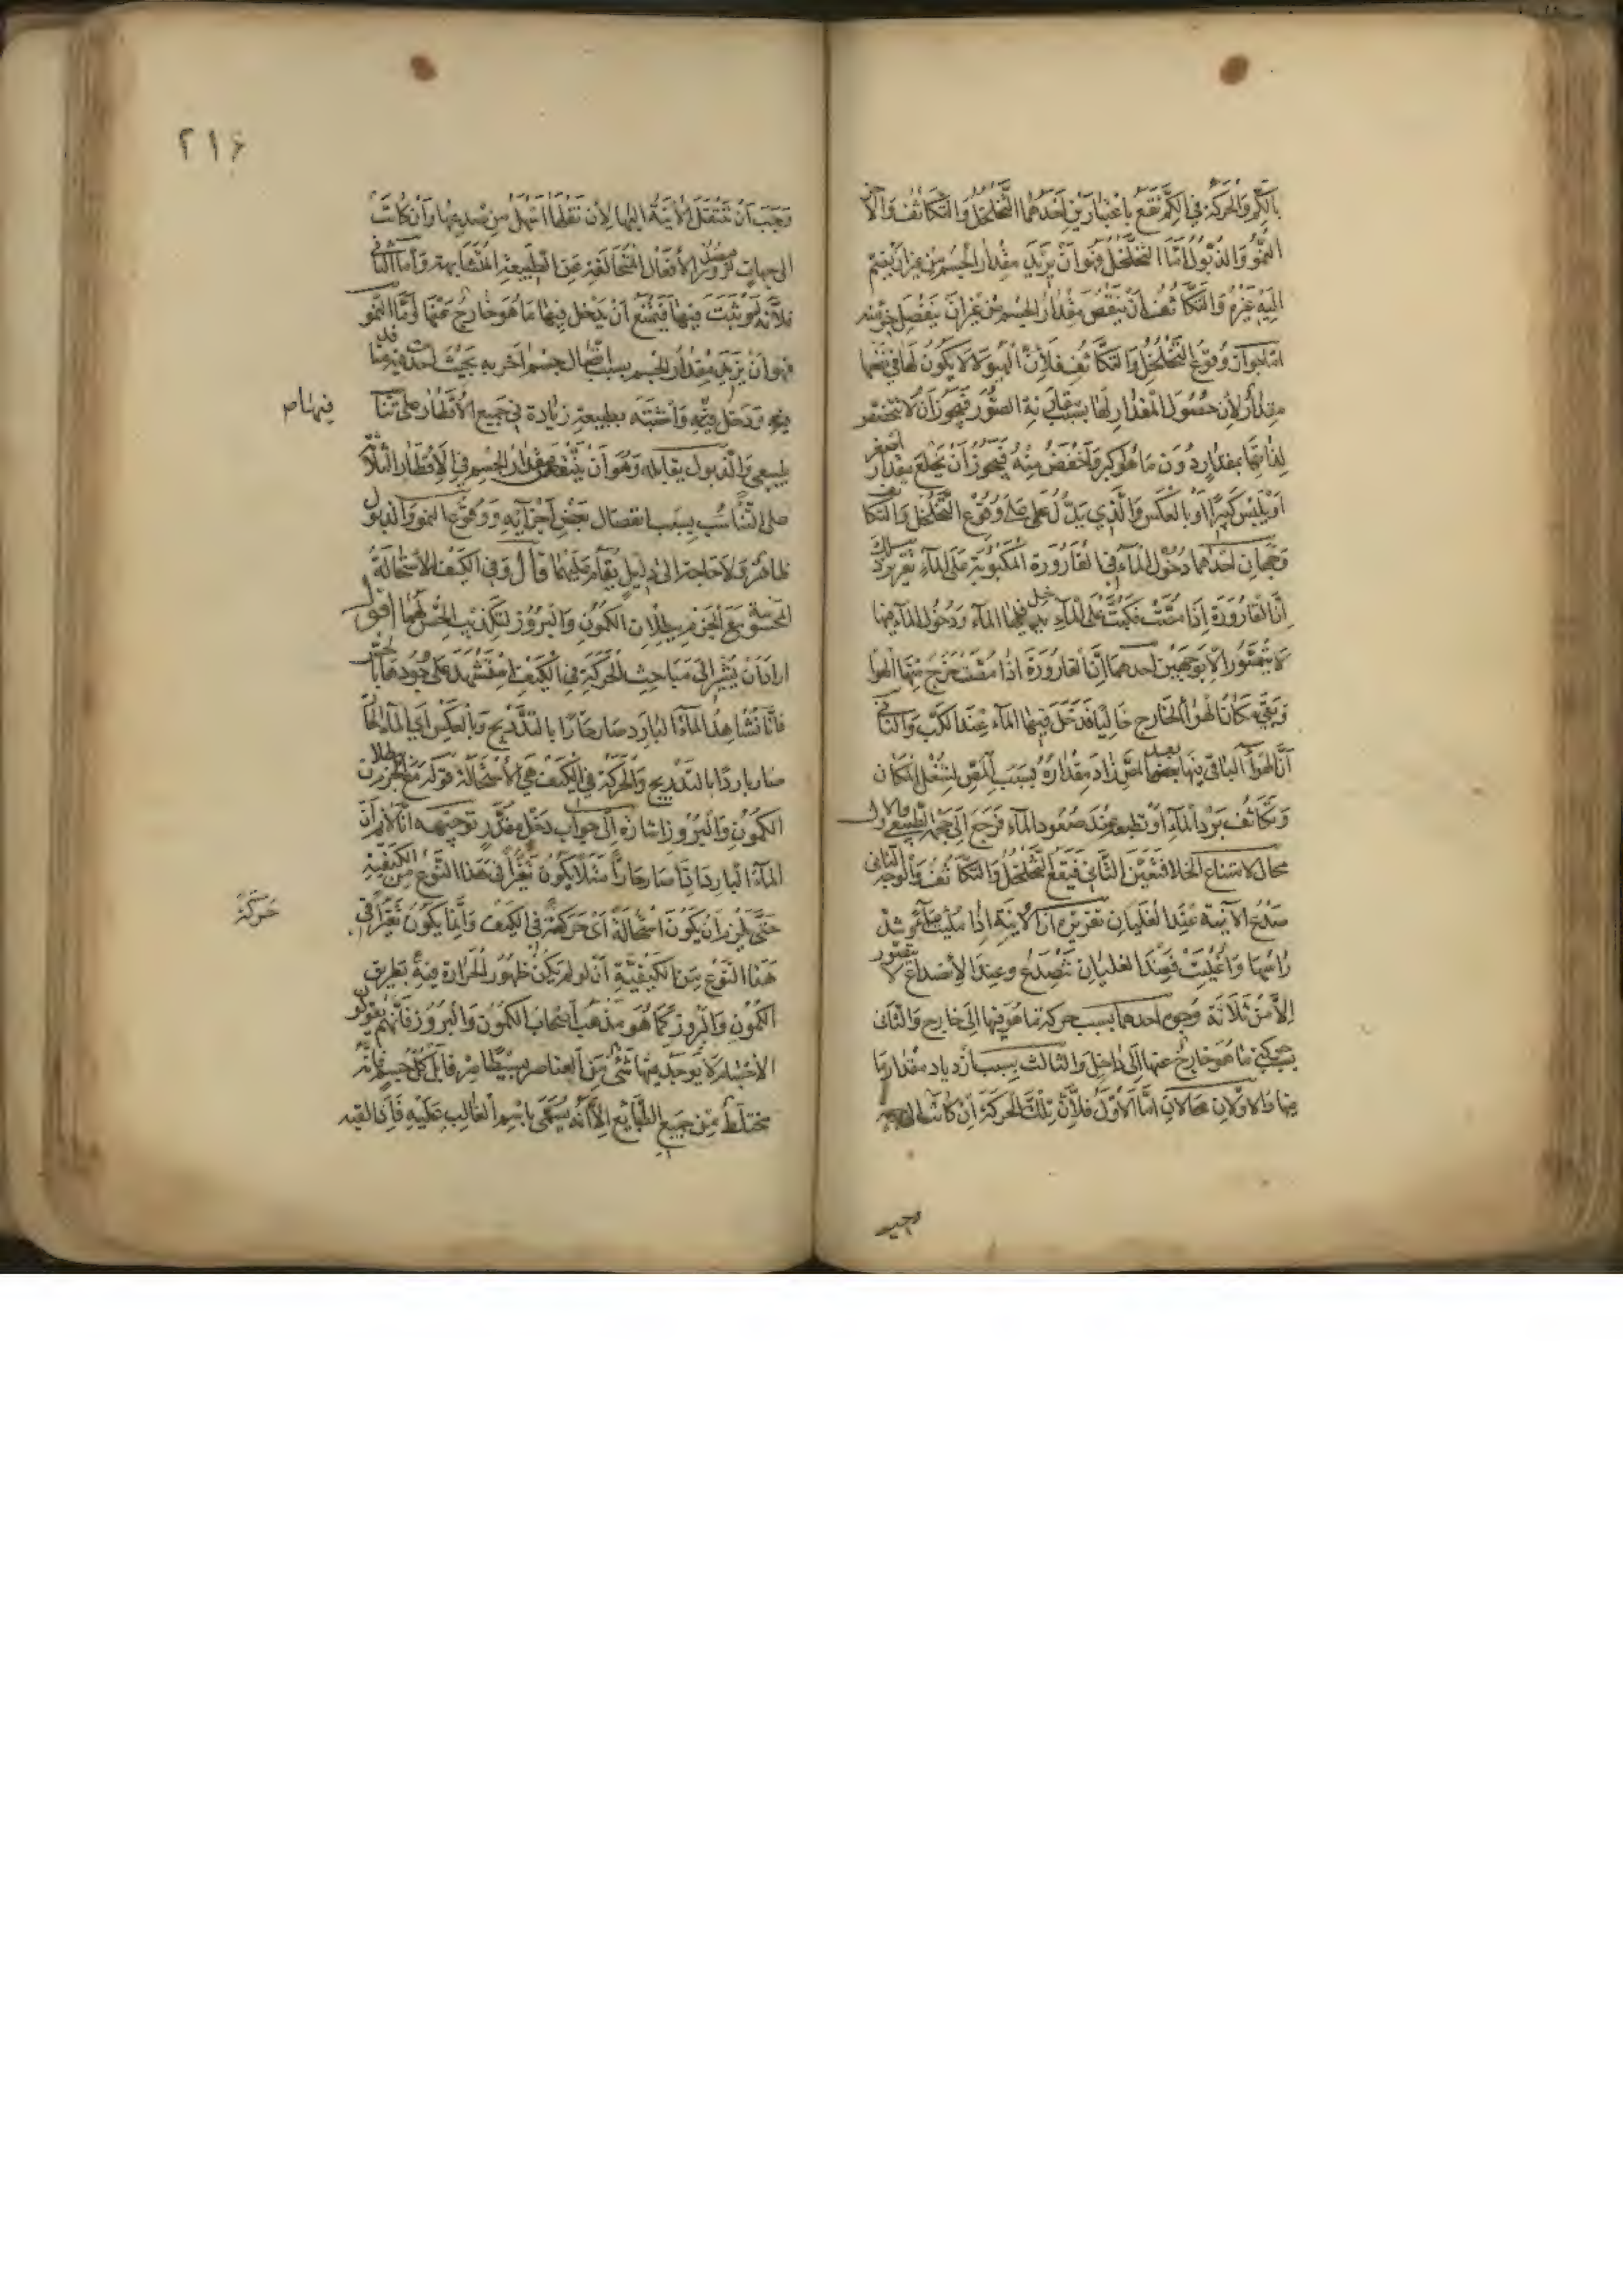 بالكم والحركة في الكم تقع باعتبارين احدهما التخلخل والتكاثف والاخر
النمو والذبول اما التخلخل فهو ان يزيد مقدار الجسم من غير ان ينضم
اليه غيره والتكاثف ان ينقص مقدار الجسم من غير ان ينفصل جزء منه
اما جواز وقوع التخلخل والتكاثف فلان الهيولا لا يكون لها في نفسها
مقدار لان حصول المقدار لها بسبب مقارنة الصور فيجوز ان لا تختص
لذاتها بمقدار دون ما هو اكبر واخفض منه فيجوز ان يخلع مقدار اصغر
او يلبس كبيرا او بالعكس والذي يدل على وقوع التخلخل والتكاثف
وجهان احدهما دخول الماء في القارورة المكبوبة على الماء تقريره
ان القارورة اذا مصت فكبت على الماء يدخل فيها الماء ودخول الماء فيها
لا يتصور الا بوجهين احدهما ان القارورة اذا مصت خرج منها الهوا
وبقي مكان الهوا الخارج خاليا فدخل فيها الماء عند الكب والثاني
ان الهوا الباقي فيها بعد المص زاد مقداره بسبب المص لشغل المكان
وتكاثف ببرد الماء او بطبعه عند صعود الماء فرجع الى حجمه الطبيعي والاول
محال لامتناع الخلا فتعين الثاني فيقع التخلخل والتكاثف والوجه الثاني
صدع الآنية عند الغليان تقريره ان الآنية اذا ملئت ماء ثم شد
راسها واغليت فعند الغليان تنصدع وعند الانصداع لا يتصور
الا من ثلاثة وجوه احدهما بسبب حركة ما هو فيها الى خارج والثاني
بحركة ما هو خارج عنها الى داخل والثالث بسبب ازدياد مقدار ما
فيها والاولان محالان اما الاول فلان تلك الحركة ان كانت الى جهة
وجب
٢١٦
وجب ان تنتقل الآنية اليها لان نقلها اسهل من صدعها وان كانت
الى جهات لزم صدور الافعال المتخالفة عن الطبيعة المتشابهة واما الثاني
فلانه لو ثبت فيها فيمتنع ان يدخل فيها ما هو خارج عنها واما النمو
فهو ان يزيد مقدار الجسم بسبب اتصال جسم اخر به بحيث احدث فيه منافذ
فيه ودخل فيه واشتبه بطبيعته زيادة في جميع الاقطار على تناسب
فيها ص
طبيعي والذبول يقابله وهو ان ينقص مقدار الجسم في الاقطار الثلاثة
على التناسب بسبب انفصال بعض اجزائه ووقوع النمو والذبول
ظاهر ولا حاجة الى دليل يقام عليهما قال وفي الكيف الاستحالة
المحسوسة مع الجزم ببطلان الكمون والبروز لتكذيب الحس لهما اقول
اراد ان يشير الى مباحث الحركة في الكيف استشهد على وجودها بالحس
فانا نشاهد الماء البارد صار حارا بالتدريج وبالعكس اي الماء الحار
صار باردا بالتدريج والحركة في الكيف هي الاستحالة قوله مع الجزم ببطلان
الكمون والبروز اشارة الى جواب دخل مقدر توجيهه انا لانم ان
الماء البارد اذا صار حارا مثلا يكون تغيرا في هذا النوع من الكيفية
حتى يلزم ان يكون استحالة اي حركة في الكيف وانما يكون تغيرا في
حركة
هذا النوع من الكيفية ان لو لم يكن ظهور الحرارة فيه بطريق
الكمون والبروز كما هو مذهب اصحاب الكمون والبروز فانهم يقولون
الاجسام لا يوجد منها شئ من العناصر بسيطا صرفا بل كل جسم فانه
مختلط من جميع الطبايع الا انه يسمى باسم الغالب عليه فاذا لقيه